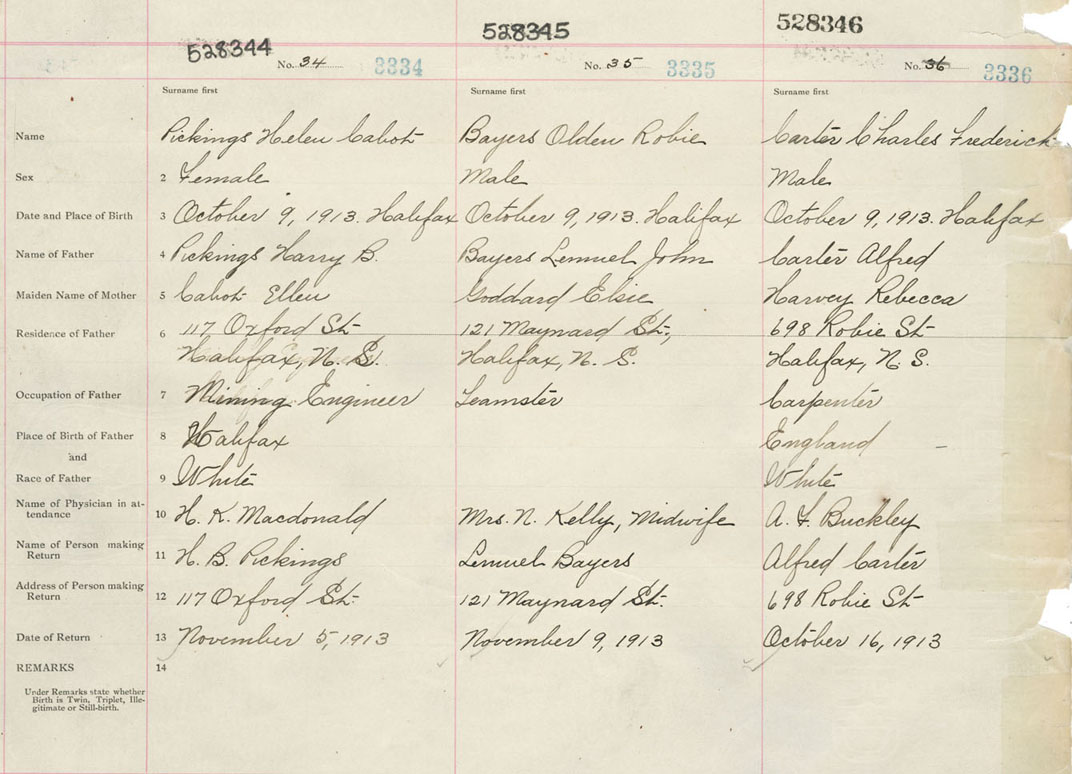 528344 528345 528346
No. 34 3334 No. 35 3335 No. 36 3336
Surname first Surname first Surname first
Name Pickings Helen Cabot Bayers Olden Robie Carter Charles Frederick
Sex 2 Female Male Male
Date and Place of Birth 3 October 9, 1913. Halifax October 9, 1913. Halifax October 9, 1913. Halifax
Name of Father 4 Pickings Harry B. Bayers Lemuel John Carter Alfred
Maiden Name of Mother 5 Cabot Ellen Goddard Elsie Harvey Rebecca
Residence of Father 6 117 Oxford St 121 Maynard St., 698 Robie St
Halifax, N. S. Halifax, N. S. Halifax, N. S.
Occupation of Father 7 Mining Engineer Teamster Carpenter
Place of Birth of Father 8 Halifax England -
and
Race of Father 9 White White
Name of Physician in at-
tendance 10 H. K. Macdonald Mrs. N. Kelly, Midwife A. F. Buckley
Name of Person making
Return 11 H. B. Pickings Lemuel Bayers Alfred Carter
Address of Person making
Return 12 117 Oxford St. 121 Maynard St. 698 Robie St
Date of Return 13 November 5, 1913 November 9, 1913 October 16, 1913
REMARKS 14
Under Remarks state whether
Birth is Twin, Triplet, Ille-
gitimate or Still-birth.